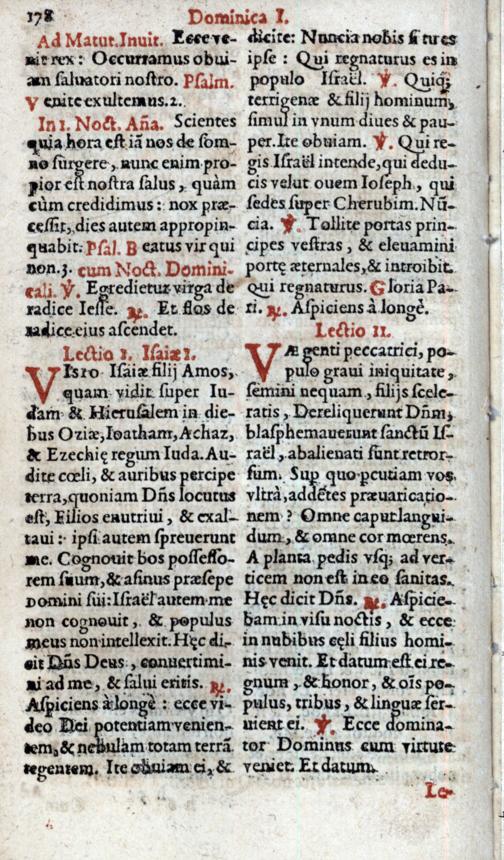 178 Dominica I.
Ad Matut. Inuit. Ecce ve-
nit rex: Occurramus obui-
am saluatori nostro. Psalm.
Venite exultemus. 2.
In I. Noct. Aña. Scientes
quia hora est iã nos de som-
no surgere, nunc enim pro-
pior est nostra salus, quàm
cùm credidimus: nox præ-
cessit, dies autem appropin-
quabit. Psal. Beatus vir qui
non. 3. cum Noct. Domini-
cali. ℣. Egredietur virga de
radice Iesse. ℟. Et flos de
radice eius ascendet.
Lectio I. Isaiæ I.
VIsio Isaiæ filij Amos,
quam vidit super Iu-
dam & Hierusalem in die-
bus Oziæ, Ioatham, Achaz,
& Ezechię regum Iuda. Au-
dite cœli, & auribus percipe
terra, quoniam Dñs locutus
est, Filios enutriui, & exal-
taui: ipsi autem spreuerunt
me. Cognouit bos possesso-
rem suum, & asinus præsepe
Domini sui: Israël autem me
non cognouit, & populus
meus non intellexit. Hęc di-
cit Dñs Deus, conuertimi-
ni ad me, & salui eritis. ℟.
Aspiciens à longè: ecce vi-
deo Dei potentiam venien-
tem, & nebulam totam terrã
tegentem. Ite obuiam ei, &
dicite: Nuncia nobis si tu es
ipse: Qui regnaturus es in
populo Israël. ℣. Quiq;
terrigenæ & filij hominum,
simul in vnum diues & pau-
per. Ite obuiam. ℣. Qui re-
gis Israël intende, qui dedu-
cis velut ouem Ioseph, qui
sedes super Cherubim. Nũ-
cia. ℣. Tollite portas prin-
cipes vestras, & eleuamini
portę æternales, & introibit.
Qui regnaturus. Gloria Pa-
tri. ℟. Aspiciens à longè.
Lectio II.
VÆ genti peccatrici, po-
pulo graui iniquitate,
semini nequam, filijs scele-
ratis, Dereliquerunt Dñm,
blasphemauerunt sanctũ Is-
raël, abalienati sunt retror-
sum. Sup quo pcutiam vos
vltrà, addẽtes præuaricatio-
nem? Omne caput langui-
dum, & omne cor mœrens.
A planta pedis vsq; ad ver-
ticem non est in eo sanitas.
Hęc dicit Dñs. ℟. Aspicie-
bam in visu noctis, & ecce
in nubibus cęli filius homi-
nis venit. Et datum est ei re-
gnum, & honor, & oĩs po-
pulus, tribus, & linguæ ser-
uient ei. ℣. Ecce domina-
tor Dominus cum virtute
veniet. Et datum.
Le-